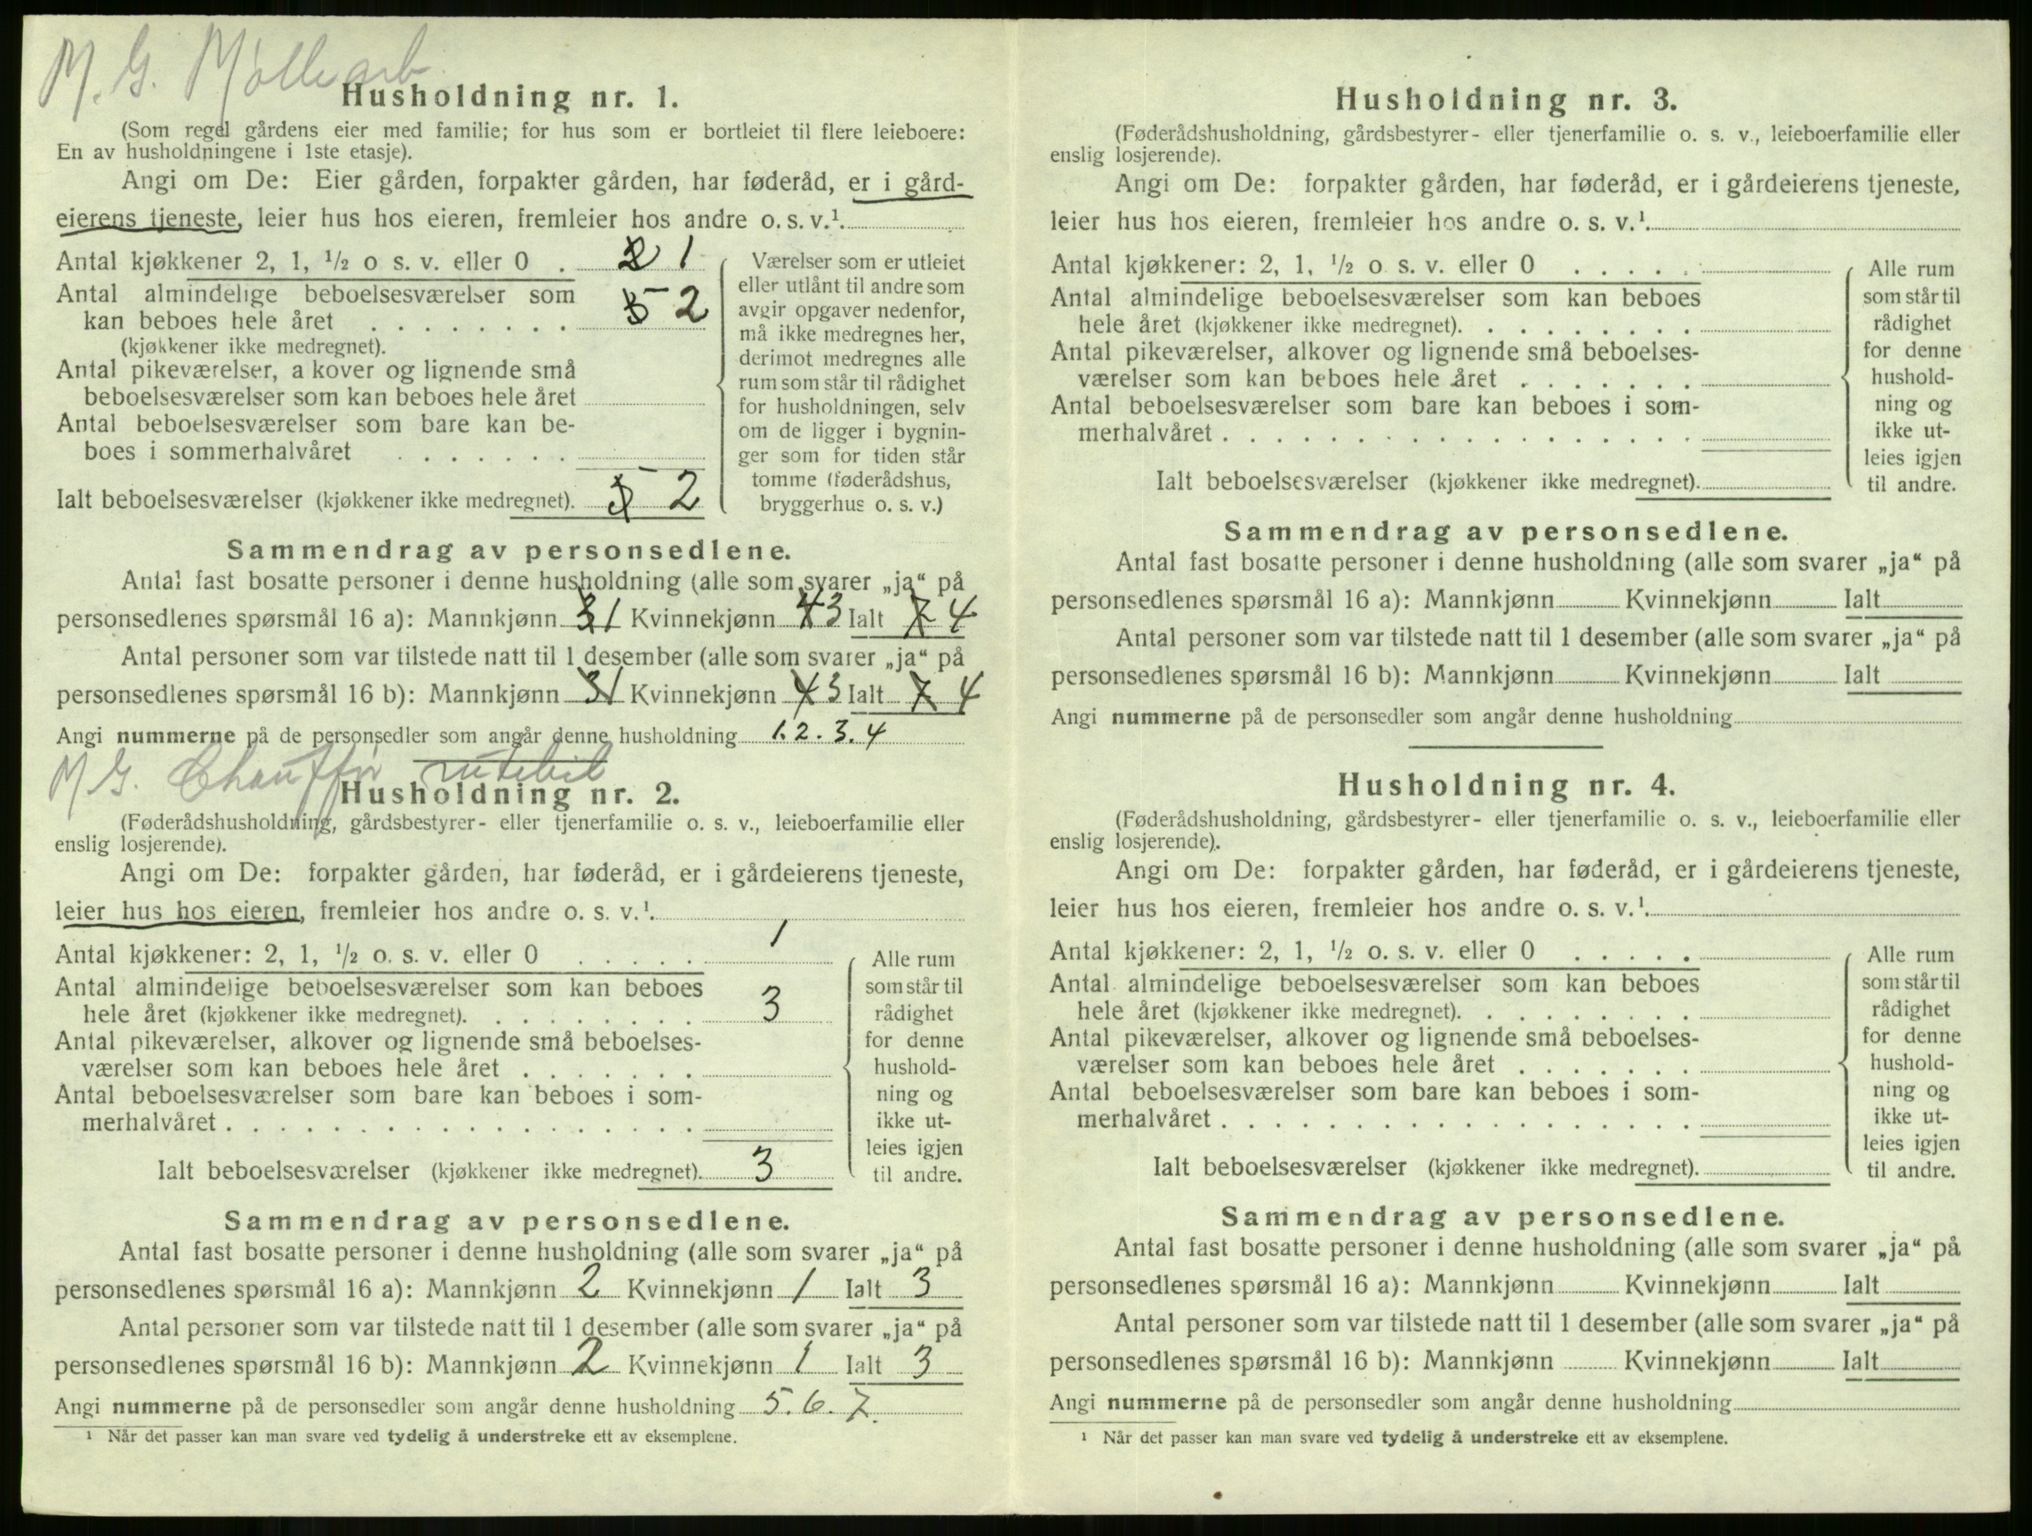 M. G. Møllearb.
Husholdning nr. 1.
(Som regel gårdens eier med familie; for hus som er bortleiet til flere leieboere:
En av husholdningene i 1ste etasje).
Angi om De: Eier gården, forpakter gården, har føderåd, er i gård-
eierens tjeneste, leier hus hos eieren, fremleier hos andre o. s. v.¹.
Antal kjøkkener 2, 1, ½ o s. v. eller 0 . 2 1
Antal almindelige beboelsesværelser som
kan beboes hele året . . . . . . . . 5 2
(kjøkkener ikke medregnet).
Antal pikeværelser, a kover og lignende små
beboelsesværelser som kan beboes hele året
Antal beboelsesværelser som bare kan be-
boes i sommerhalvåret . . . . . . .
Ialt beboelsesværelser (kjøkkener ikke medregnet). 5 2
Værelser som er utleiet
eller utlånt til andre som
avgir opgaver nedenfor,
må ikke medregnes her,
derimot medregnes alle
rum som står til rådighet
for husholdningen, selv
om de ligger i bygnin-
ger som for tiden står
tomme (føderådshus,
bryggerhus o. s. v.)
Sammendrag av personsedlene.
Antal fast bosatte personer i denne husholdning (alle som svarer „ja“ på
personsedlenes spørsmål 16 a): Mannkjønn 3 1 Kvinnekjønn 4 3 Ialt 7 4
Antal personer som var tilstede natt til 1 desember (alle som svarer „ja“ på
personsedlenes spørsmål 16 b): Mannkjønn 3 1 Kvinnekjønn 4 3 Ialt 7 4
Angi nummerne på de personsedler som angår denne husholdning 1. 2. 3. 4
M G. Chauffør rutebil
Husholdning nr. 2.
(Føderådshusholdning, gårdsbestyrer- eller tjenerfamilie o. s. v., leieboerfamilie eller
enslig losjerende).
Angi om De: forpakter gården, har føderåd, er i gårdeierens tjeneste,
leier hus hos eieren, fremleier hos andre o. s. v.¹.
Antal kjøkkener: 2, 1, ½ o. s. v. eller 0 . . . . . 1
Antal almindelige beboelsesværelser som kan beboes
hele året (kjøkkener ikke medregnet). . . . . . . . . 3
Antal pikeværelser, alkover og lignende små beboelses-
værelser som kan beboes hele året . . . . . . .
Antal beboelsesværelser som bare kan beboes i som-
merhalvåret . . . . . . . . . . . . . . . . . .
Ialt beboelsesværelser (kjøkkener ikke medregnet). 3
Alle rum
som står til
rådighet
for denne
hushold-
ning og
ikke ut-
leies igjen
til andre.
Sammendrag av personsedlene.
Antal fast bosatte personer i denne husholdning (alle som svarer „ja“ på
personsedlenes spørsmål 16 a): Mannkjønn 2 Kvinnekjønn 1 Ialt 3
Antal personer som var tilstede natt til 1 desember (alle som svarer „ja“ på
personsedlenes spørsmål 16 b): Mannkjønn 2 Kvinnekjønn 1 Ialt 3
Angi nummerne på de personsedler som angår denne husholdning 5. 6. 7.
¹ Når det passer kan man svare ved tydelig å understreke ett av eksemplene.
Husholdning nr. 3.
(Føderådshusholdning, gårdsbestyrer- eller tjenerfamilie o. s. v., leieboerfamilie eller
enslig losjerende).
Angi om De: forpakter gården, har føderåd, er i gårdeierens tjeneste,
leier hus hos eieren, fremleier hos andre o. s. v.¹.
Antal kjøkkener: 2, 1, ½ o. s. v. eller 0 . . . . .
Antal almindelige beboelsesværelser som kan beboes
hele året (kjøkkener ikke medregnet). . . . . . . . .
Antal pikeværelser, alkover og lignende små beboelses-
værelser som kan beboes hele året . . . . . . .
Antal beboelsesværelser som bare kan beboes i som-
merhalvåret . . . . . . . . . . . . . . . . . .
Ialt beboelsesværelser (kjøkkener ikke medregnet).
Alle rum
som står til
rådighet
for denne
hushold-
ning og
ikke ut-
leies igjen
til andre.
Sammendrag av personsedlene.
Antal fast bosatte personer i denne husholdning (alle som svarer „ja“ på
personsedlenes spørsmål 16 a): Mannkjønn Kvinnekjønn Ialt
Antal personer som var tilstede natt til 1 desember (alle som svarer „ja“ på
personsedlenes spørsmål 16 b): Mannkjønn Kvinnekjønn Ialt
Angi nummerne på de personsedler som angår denne husholdning
Husholdning nr. 4.
(Føderådshusholdning, gårdsbestyrer- eller tjenerfamilie o. s. v., leieboerfamilie eller
enslig losjerende).
Angi om De: forpakter gården, har føderåd, er i gårdeierens tjeneste,
leier hus hos eieren, fremleier hos andre o. s. v.¹.
Antal kjøkkener: 2, 1, ½ o. s. v. eller 0 . . . . .
Antal almindelige beboelsesværelser som kan beboes
hele året (kjøkkener ikke medregnet). . . . . . . . .
Antal pikeværelser, alkover og lignende små beboelses-
værelser som kan beboes hele året . . . . . . .
Antal beboelsesværelser som bare kan beboes i som-
merhalvåret . . . . . . . . . . . . . . . . . .
Ialt beboelsesværelser (kjøkkener ikke medregnet).
Alle rum
som står til
rådighet
for denne
hushold-
ning og
ikke ut-
leies igjen
til andre.
Sammendrag av personsedlene.
Antal fast bosatte personer i denne husholdning (alle som svarer „ja“ på
personsedlenes spørsmål 16 a): Mannkjønn Kvinnekjønn Ialt
Antal personer som var tilstede natt til 1 desember (alle som svarer „ja“ på
personsedlenes spørsmål 16 b): Mannkjønn Kvinnekjønn Ialt
Angi nummerne på de personsedler som angår denne husholdning
¹ Når det passer kan man svare ved tydelig å understreke ett av eksemplene.